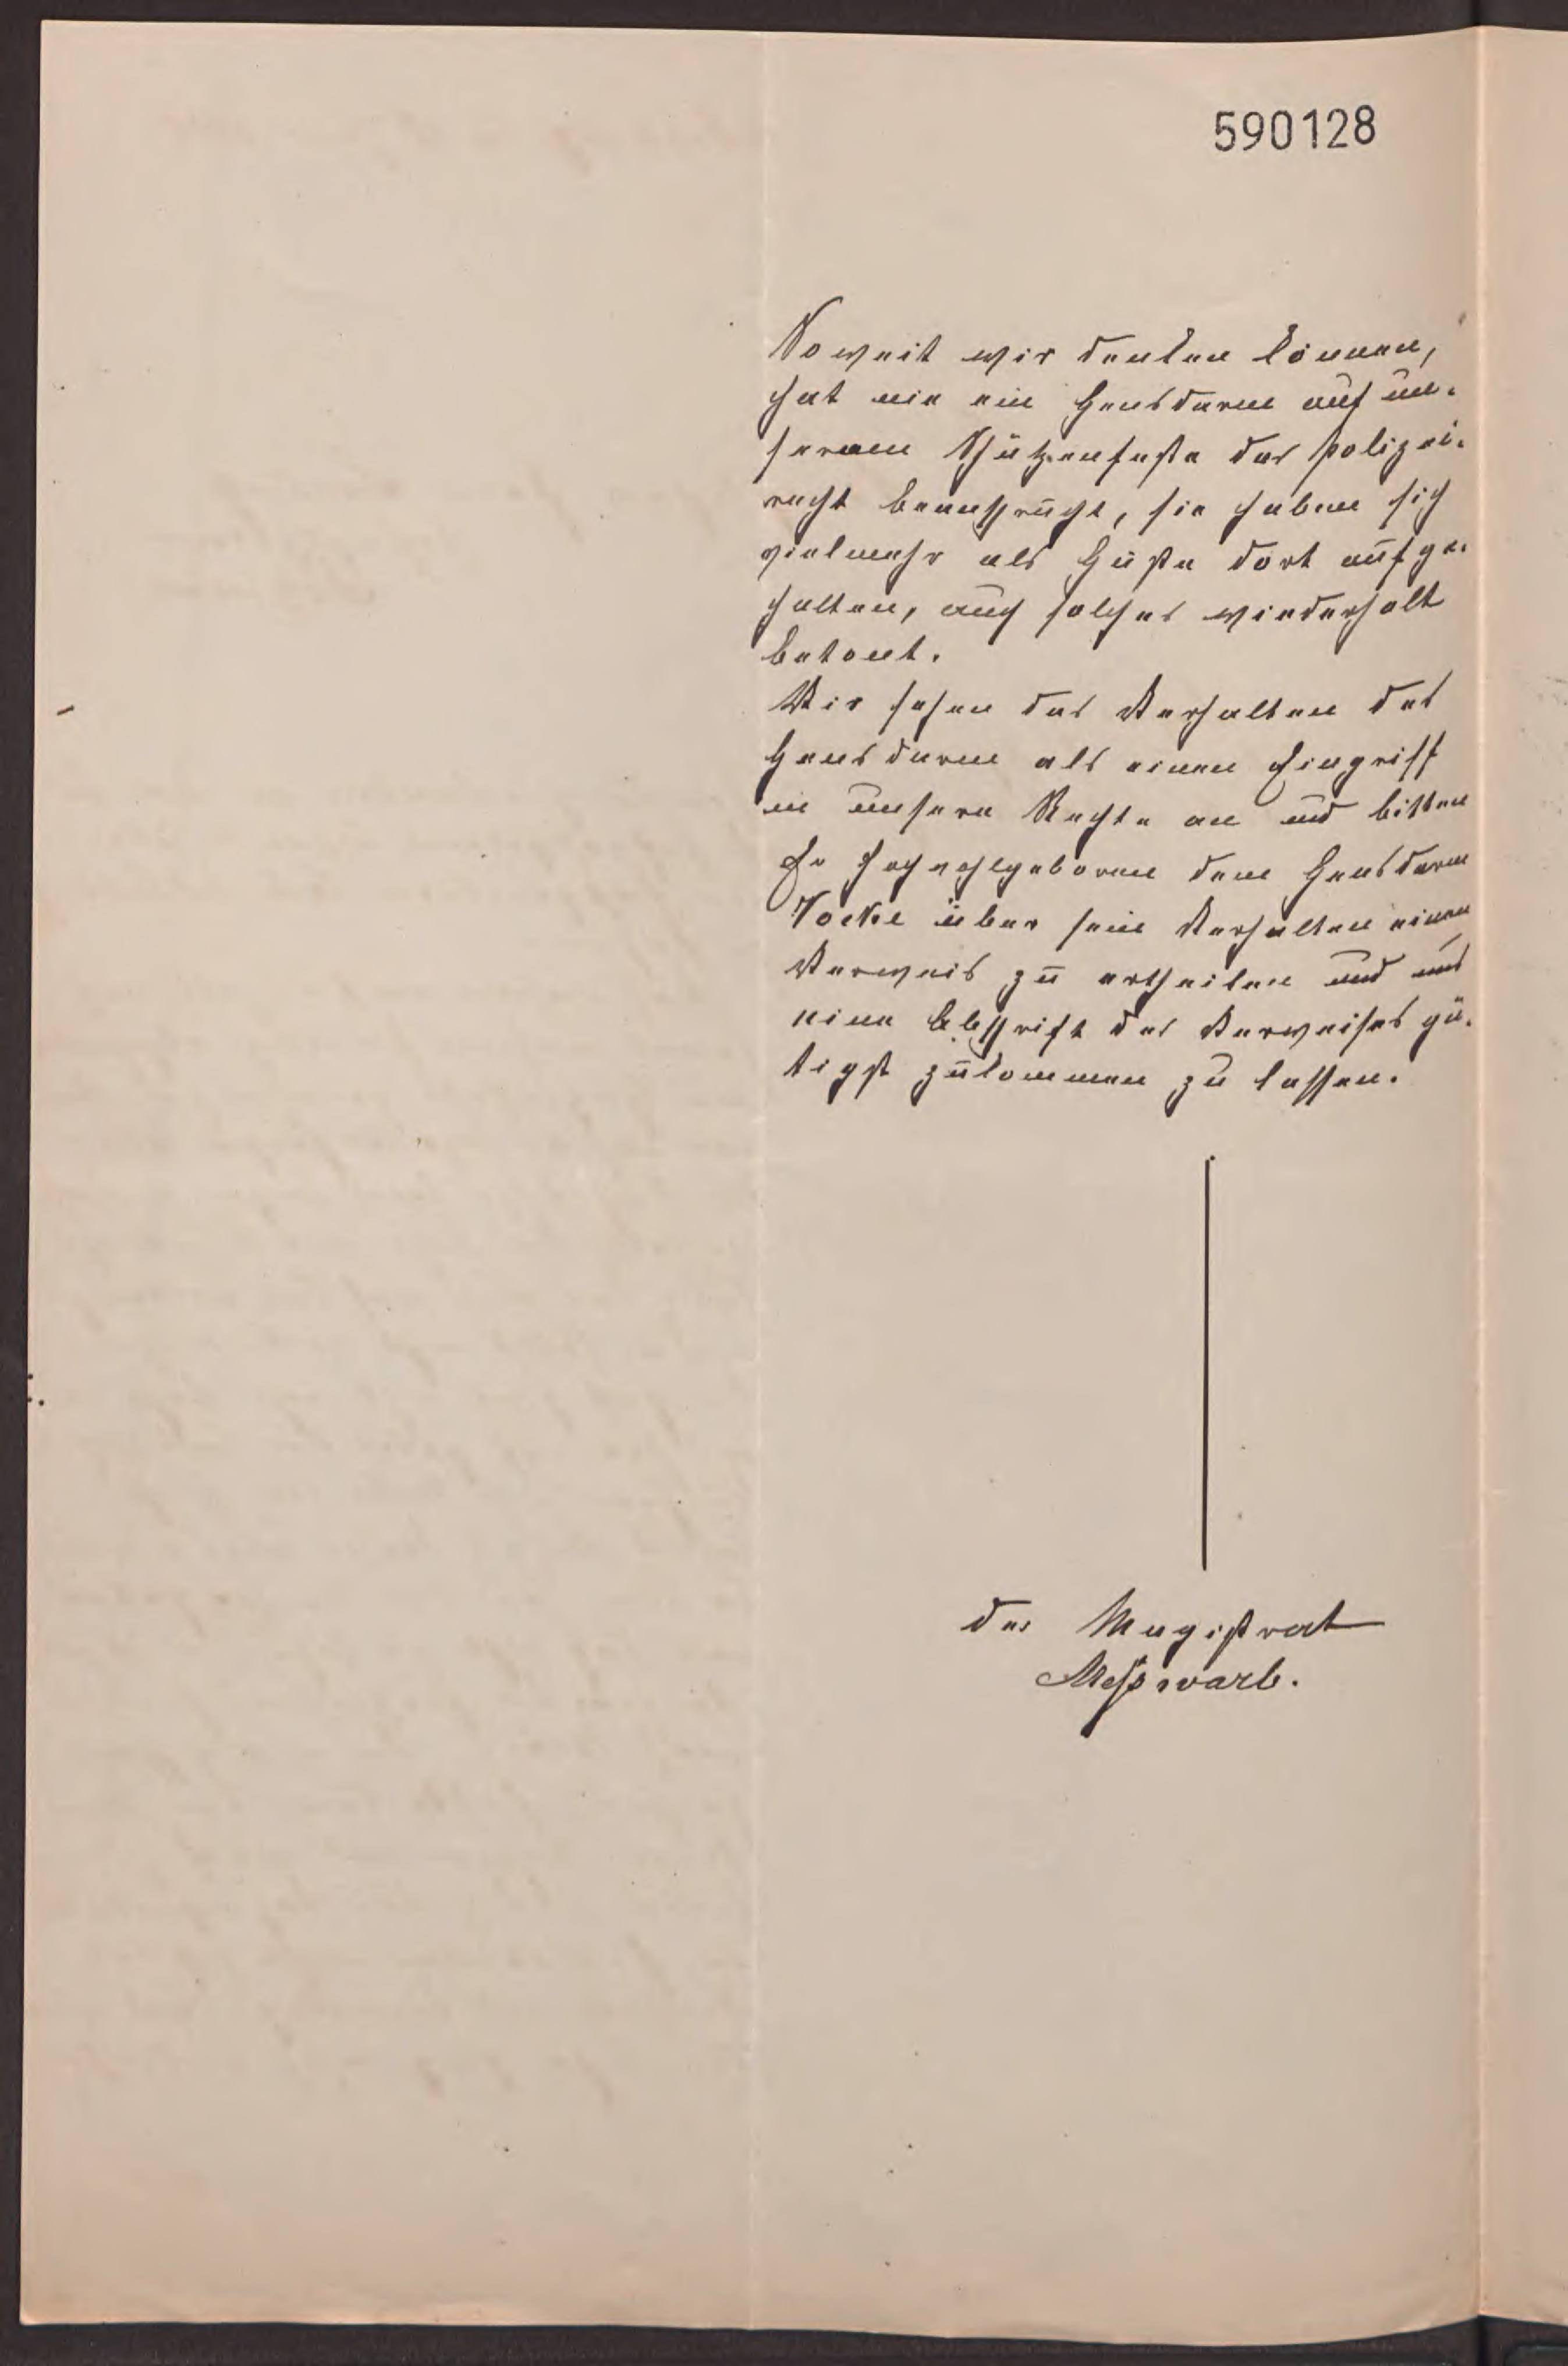 590128
Soweit wir denken können,
hat nie ein Gensdarm auf un-
serem Schützenfeste das Polizei-
recht beansprucht, sie haben sich
vielmehr als Gäste dort aufge-
halten, auch solches wiederholt
betont.
Wir sehen das Verhalten des
Gensdarm als einen Eingriff
in unsere Rechte an und bitten
Ew Hochwohlgeboren dem Gensdarm
über sein Verhalten einen
Verweis zu ertheilen und uns
eine Abschrift des Verweises gü-
tigst zukommen zu lassen.
der Magistrat
Meßwarb.